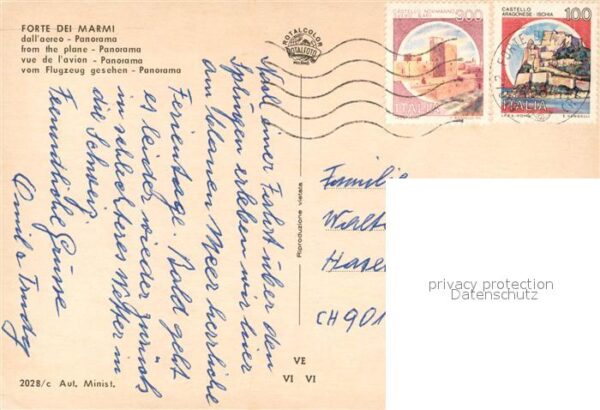 FORTE DEI MARMI
dall'aereo - Panorama
from the plane - Panorama
vue de l'avion - Panorama
vom Flugzeug gesehen - Panorama
ROTALCOLOR
ROTALFOTO
MILANO
CASTELLO NORMANNO
SVEVO BARI
900
ITALIA
CASTELLO
ARAGONESE ISCHIA
100
ITALIA
Nach einer Fahrt über den
Splügen erleben wir hier
am blauen Meer herrliche
Ferientage. Bald geht
es leider wieder zurück
in schlechteres Wetter in
die Schweiz
Freundliche Grüsse
Emil & Trudy
Riproduzione vietata
Familie
Walt
CH 901
privacy protection
Datenschutz
VE
VI VI
2028/c Aut. Minist.